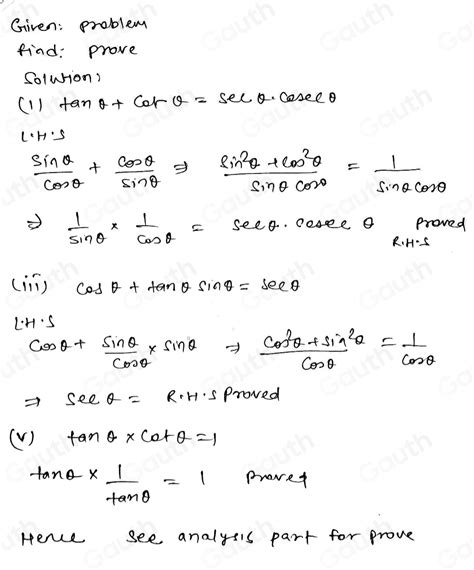 Given: problem
find: prove
Solution:
(1) tan θ + Cot θ = sec θ. Cosec θ
L.H.S
Sinθ/Cosθ + Cosθ/Sinθ ⇒ Sin²θ + Cos²θ/Sinθ Cosθ = 1/Sinθ Cosθ
⇒ 1/Sinθ × 1/Cosθ = Secθ. Cosec θ Proved
R.H.S
(iii) Cos θ + tan θ Sinθ = Secθ
L.H.S
Cosθ + Sinθ/Cosθ × Sinθ ⇒ Cos²θ + Sin²θ/Cosθ = 1/Cosθ
⇒ Sec θ = R.H.S Proved
(V) tan θ × Cot θ = 1
tanθ × 1/tanθ = 1 Proved
Hence See analysis part for prove
Gauth